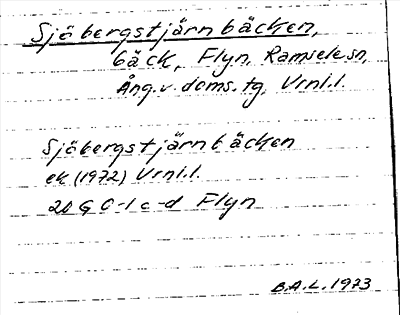 Sjöbergstjärnbäcken,
bäck, Flyn, Ramsele sn,
Ång. v. doms. tg, Vrnl.l.
Sjöbergstjärnbäcken
ek (1972) Vrnl.l.
20 G 0-1 c-d Flyn
B.A.L. 1973